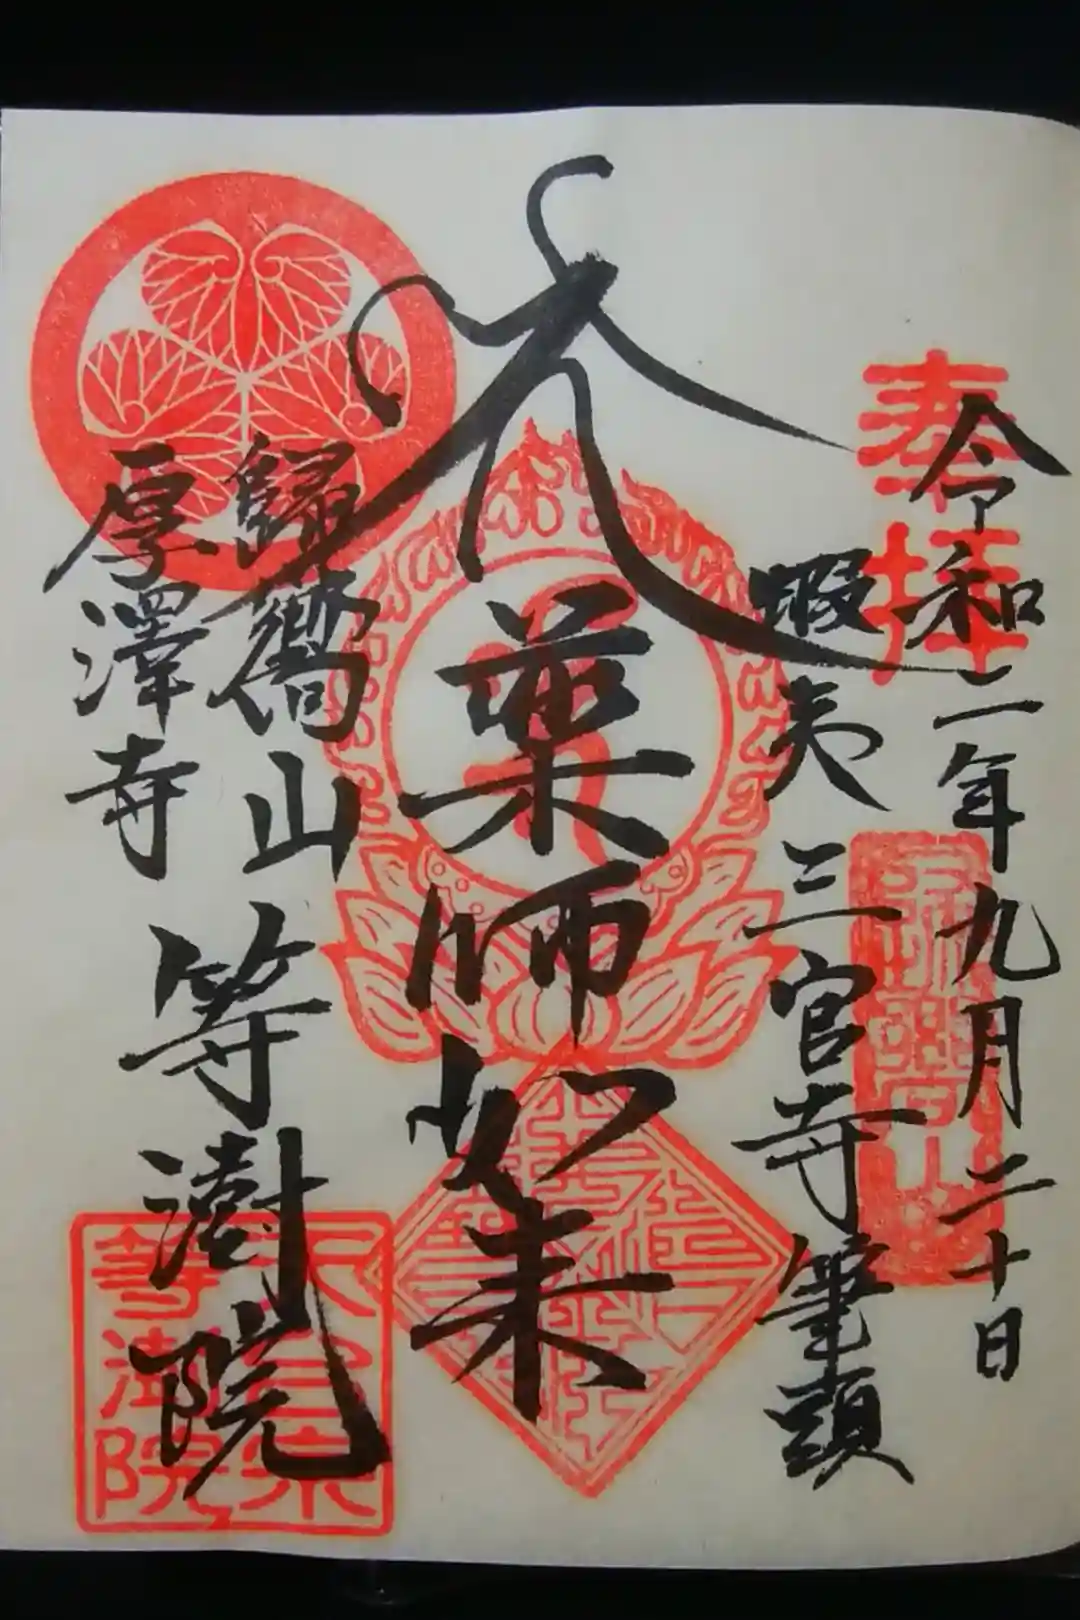 奉拝
令和二年九月二十日
蝦夷三官寺筆頭
薬師如来
歸嚮山
厚澤寺
等澍院
天台宗
等澍院